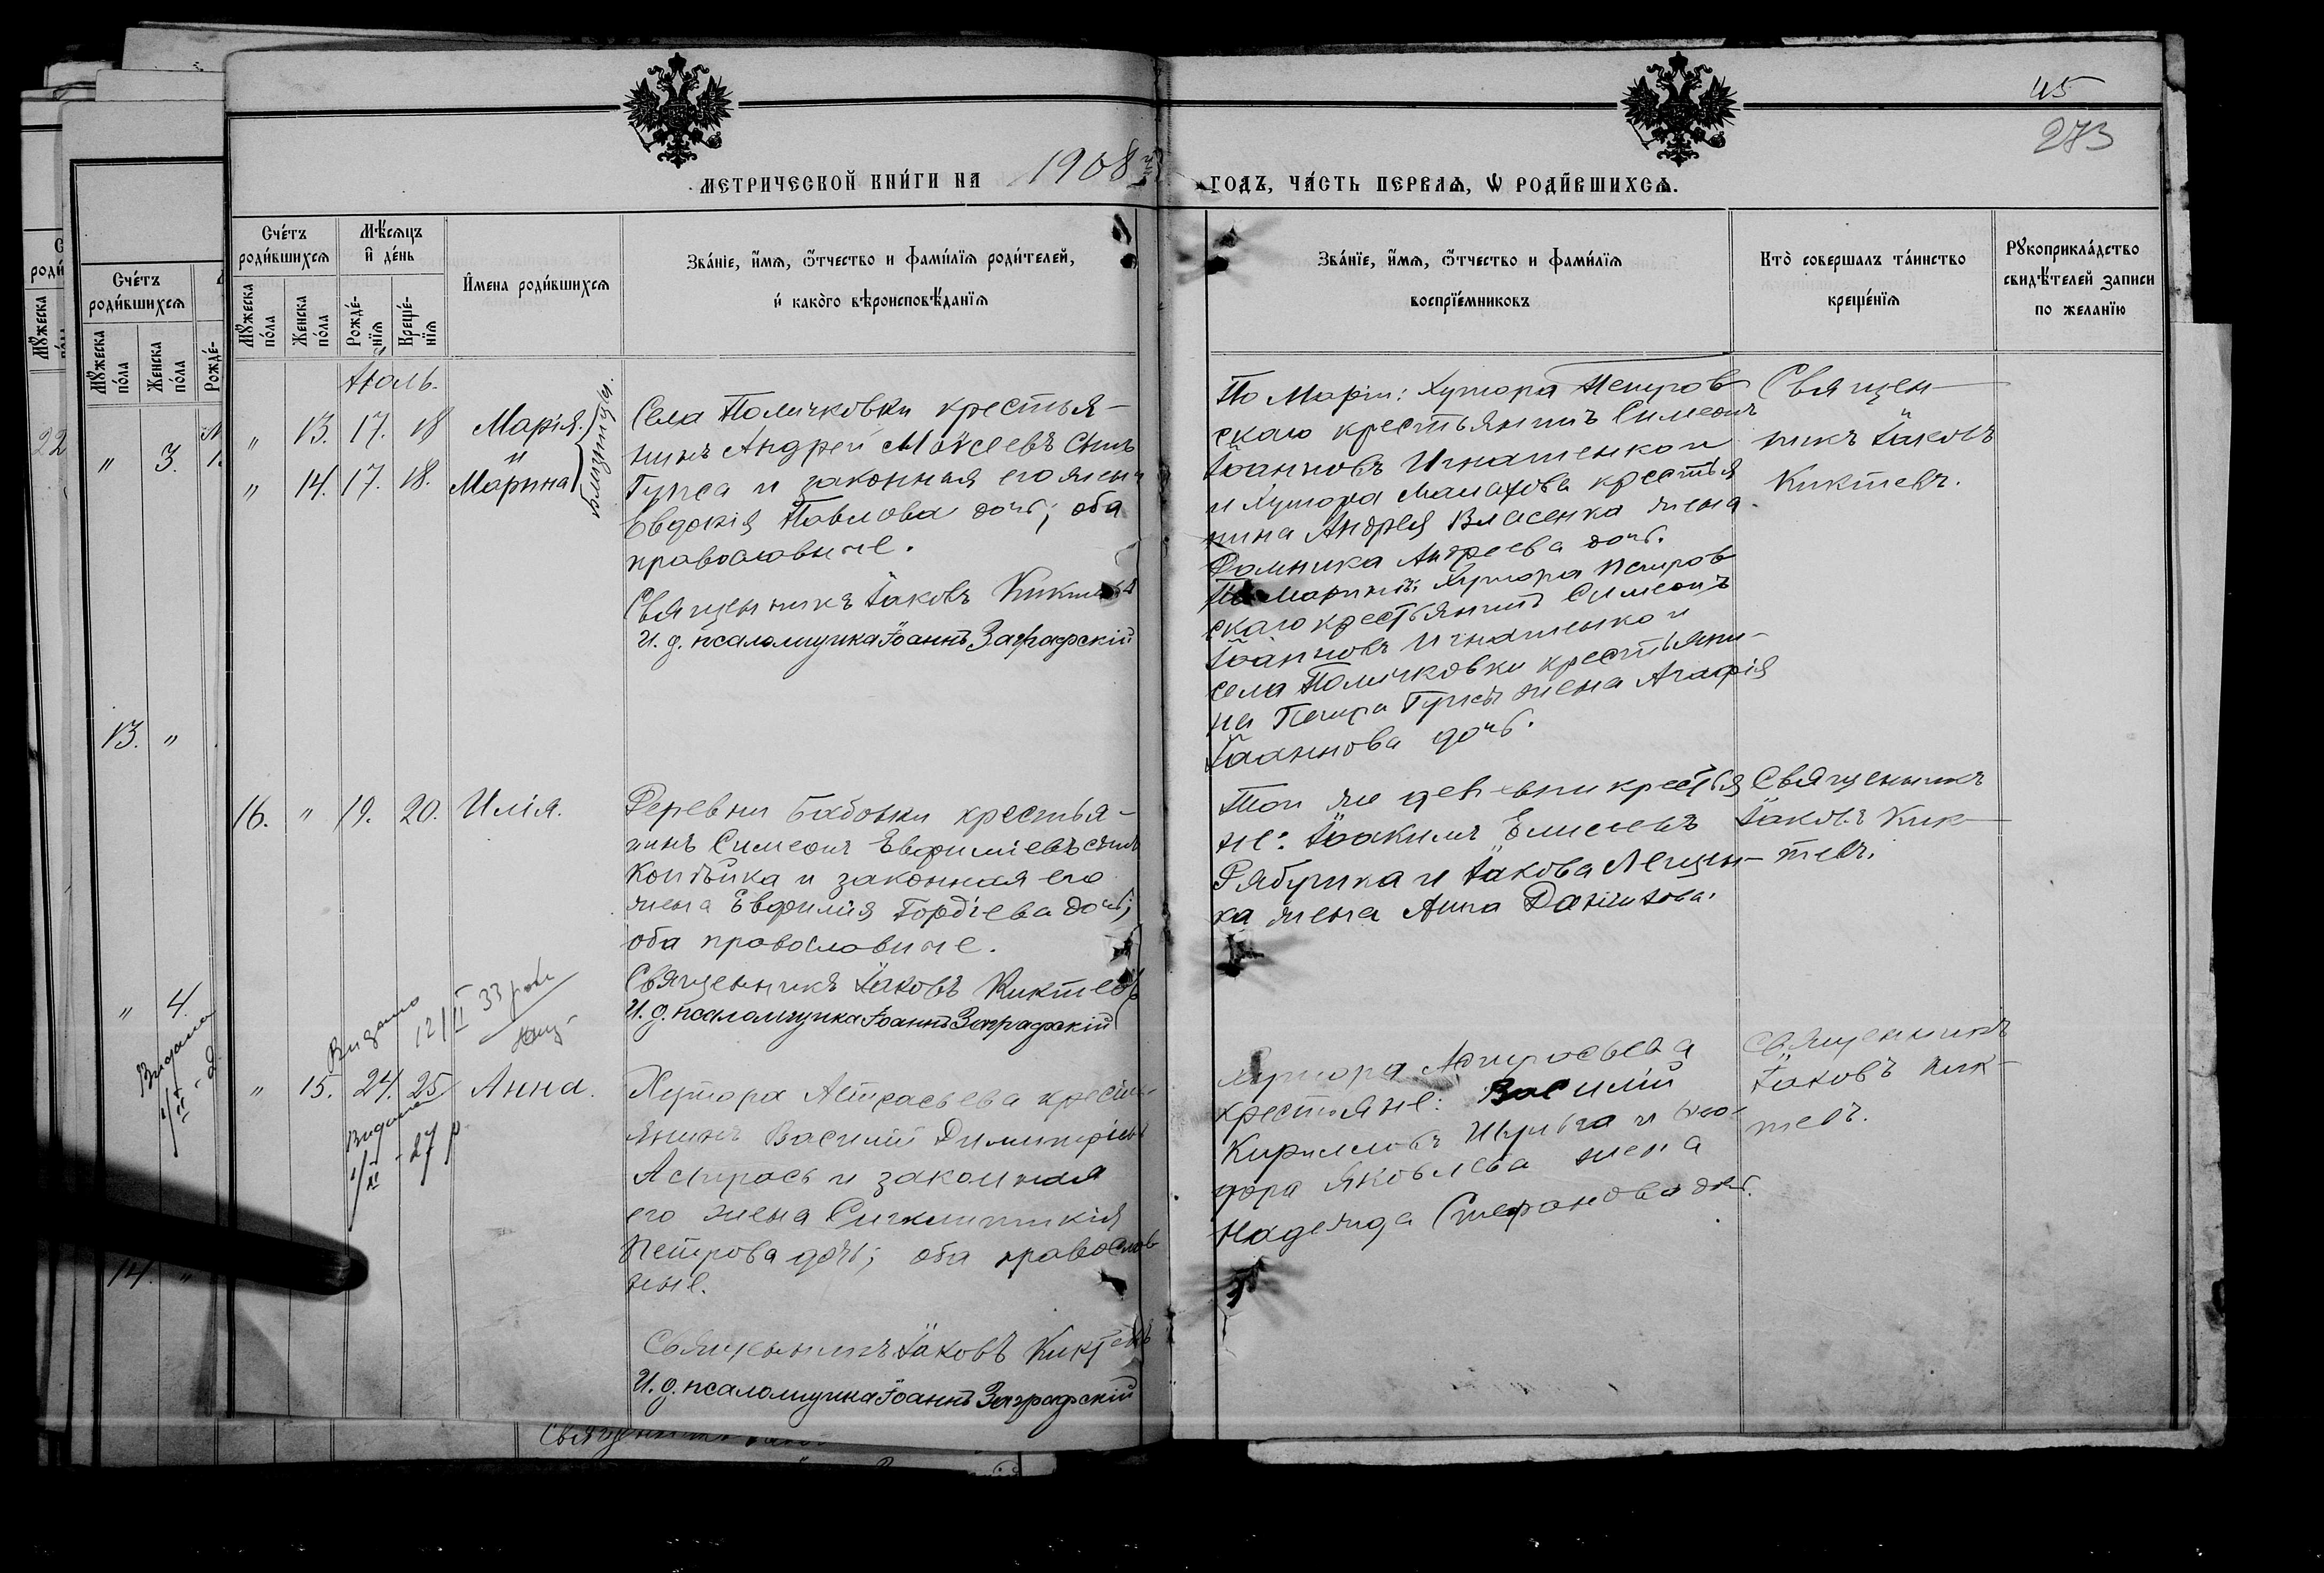 45
273
МЕТРИЧЕСКОЙ КНИ́ГИ НА 1908й ГОДЪ, ЧА́СТЬ ПЕ́РВАѦ, Ѡ РОДИ́ВШИХСѦ.
Сче́тъ роди́вшихсѧ
Мꙋ́жеска по́ла
Же́нска по́ла
Мѣ́сѧцъ и҆ де́нь
Рожде́нїѧ
Креще́нїѧ
И҆мена̀ роди́вшихсѧ
Зва́нїе, и҆́мѧ, ѻ҆́тчество и фами́лїѧ роди́телей,
и҆ како́гѡ вѣроисповѣ́данїѧ
Зва́нїе, и҆́мѧ, ѻ҆́тчество и фами́лїѧ
воспрїе́мниковъ
Кто̀ соверша́лъ та́инство
креще́нїѧ
Рꙋкоприкла́дство
свидѣ́телей записи
по жела́нїю
Іюль.
" 13. 17. 18 Марія.
и
" 14. 17. 18. Марина
близнецы.
Села Поличковки крестья-
нинъ Андрей Моѵсеевъ Сынъ
Гупса и законная его жена
Евдокія Павлова дочь; оба
православные.
Священникъ Іаковъ Киктевъ
И. д. псаломщика Іоаннъ Заграфскій
По Маріи: Хутора Петров
скаго крестьянинъ Симеонъ
Іоанновъ Игнатенко и
и Хутора крестья
нина Андрея Власенка жена
Домника Андреева дочь.
По Маринѣ: Хутора Петров
скаго крестьянинъ Симеонъ
Іоанновъ Игнатенко и
села Поличковки крестьяни-
на Петра Гупсы жена Агафія
Іоаннова дочь.
Священ
никъ Іаковъ
Киктевъ.
16. " 19. 20. Илія.
Деревни Бабовки крестья-
нинъ Симеонъ Евфиміевъ сынъ
Копѣйка и законная его
жена Евфимія Гордіева дочь;
оба православные.
Священникъ Іаковъ Киктевъ
И. д. псаломщика Іоаннъ Заграфскій
Той же деревни крестья
не: Іоакимъ Елисеевъ
Рябушка и Іакова Лещен-
ка жена Анна Данилова.
Священникъ
Іаковъ Кик
тевъ.
Видано
12/II 33 року
" 15. 24. 25 Анна.
Виданий
1/XI - 27 р
Хутора Астрасьева кресть-
янинъ Василій Димитріевъ
Астрась и законная
его жена Синклитикія
Петрова дочь; оба православ
ные.
Священникъ Іаковъ Киктевъ
И. д. псаломщика Іоаннъ Заграфскій
Хутора Астрасьева
крестьяне: Василій
Кирилловъ и Ѳео-
дора Яковлева жена
Надежда Стефанова дочь.
Священникъ
Іаковъ Кик-
тевъ.
Сче́тъ
роди́вшихсѧ
Мꙋ́жеска
по́ла
Же́нска
по́ла
Рожде́-
22
" 3.
13. "
" 4.
Видана
14. "